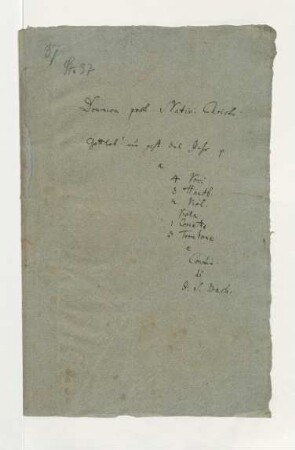 37
No 37
Dominica post Nativ. Christi.
Gottlob! nun geht das Jahr p
a
4 Voci
3 Hautb.
2 Viol.
Viola
1 Cornetto
3 Tromboni
e
Contin
di
J. S. Bach.